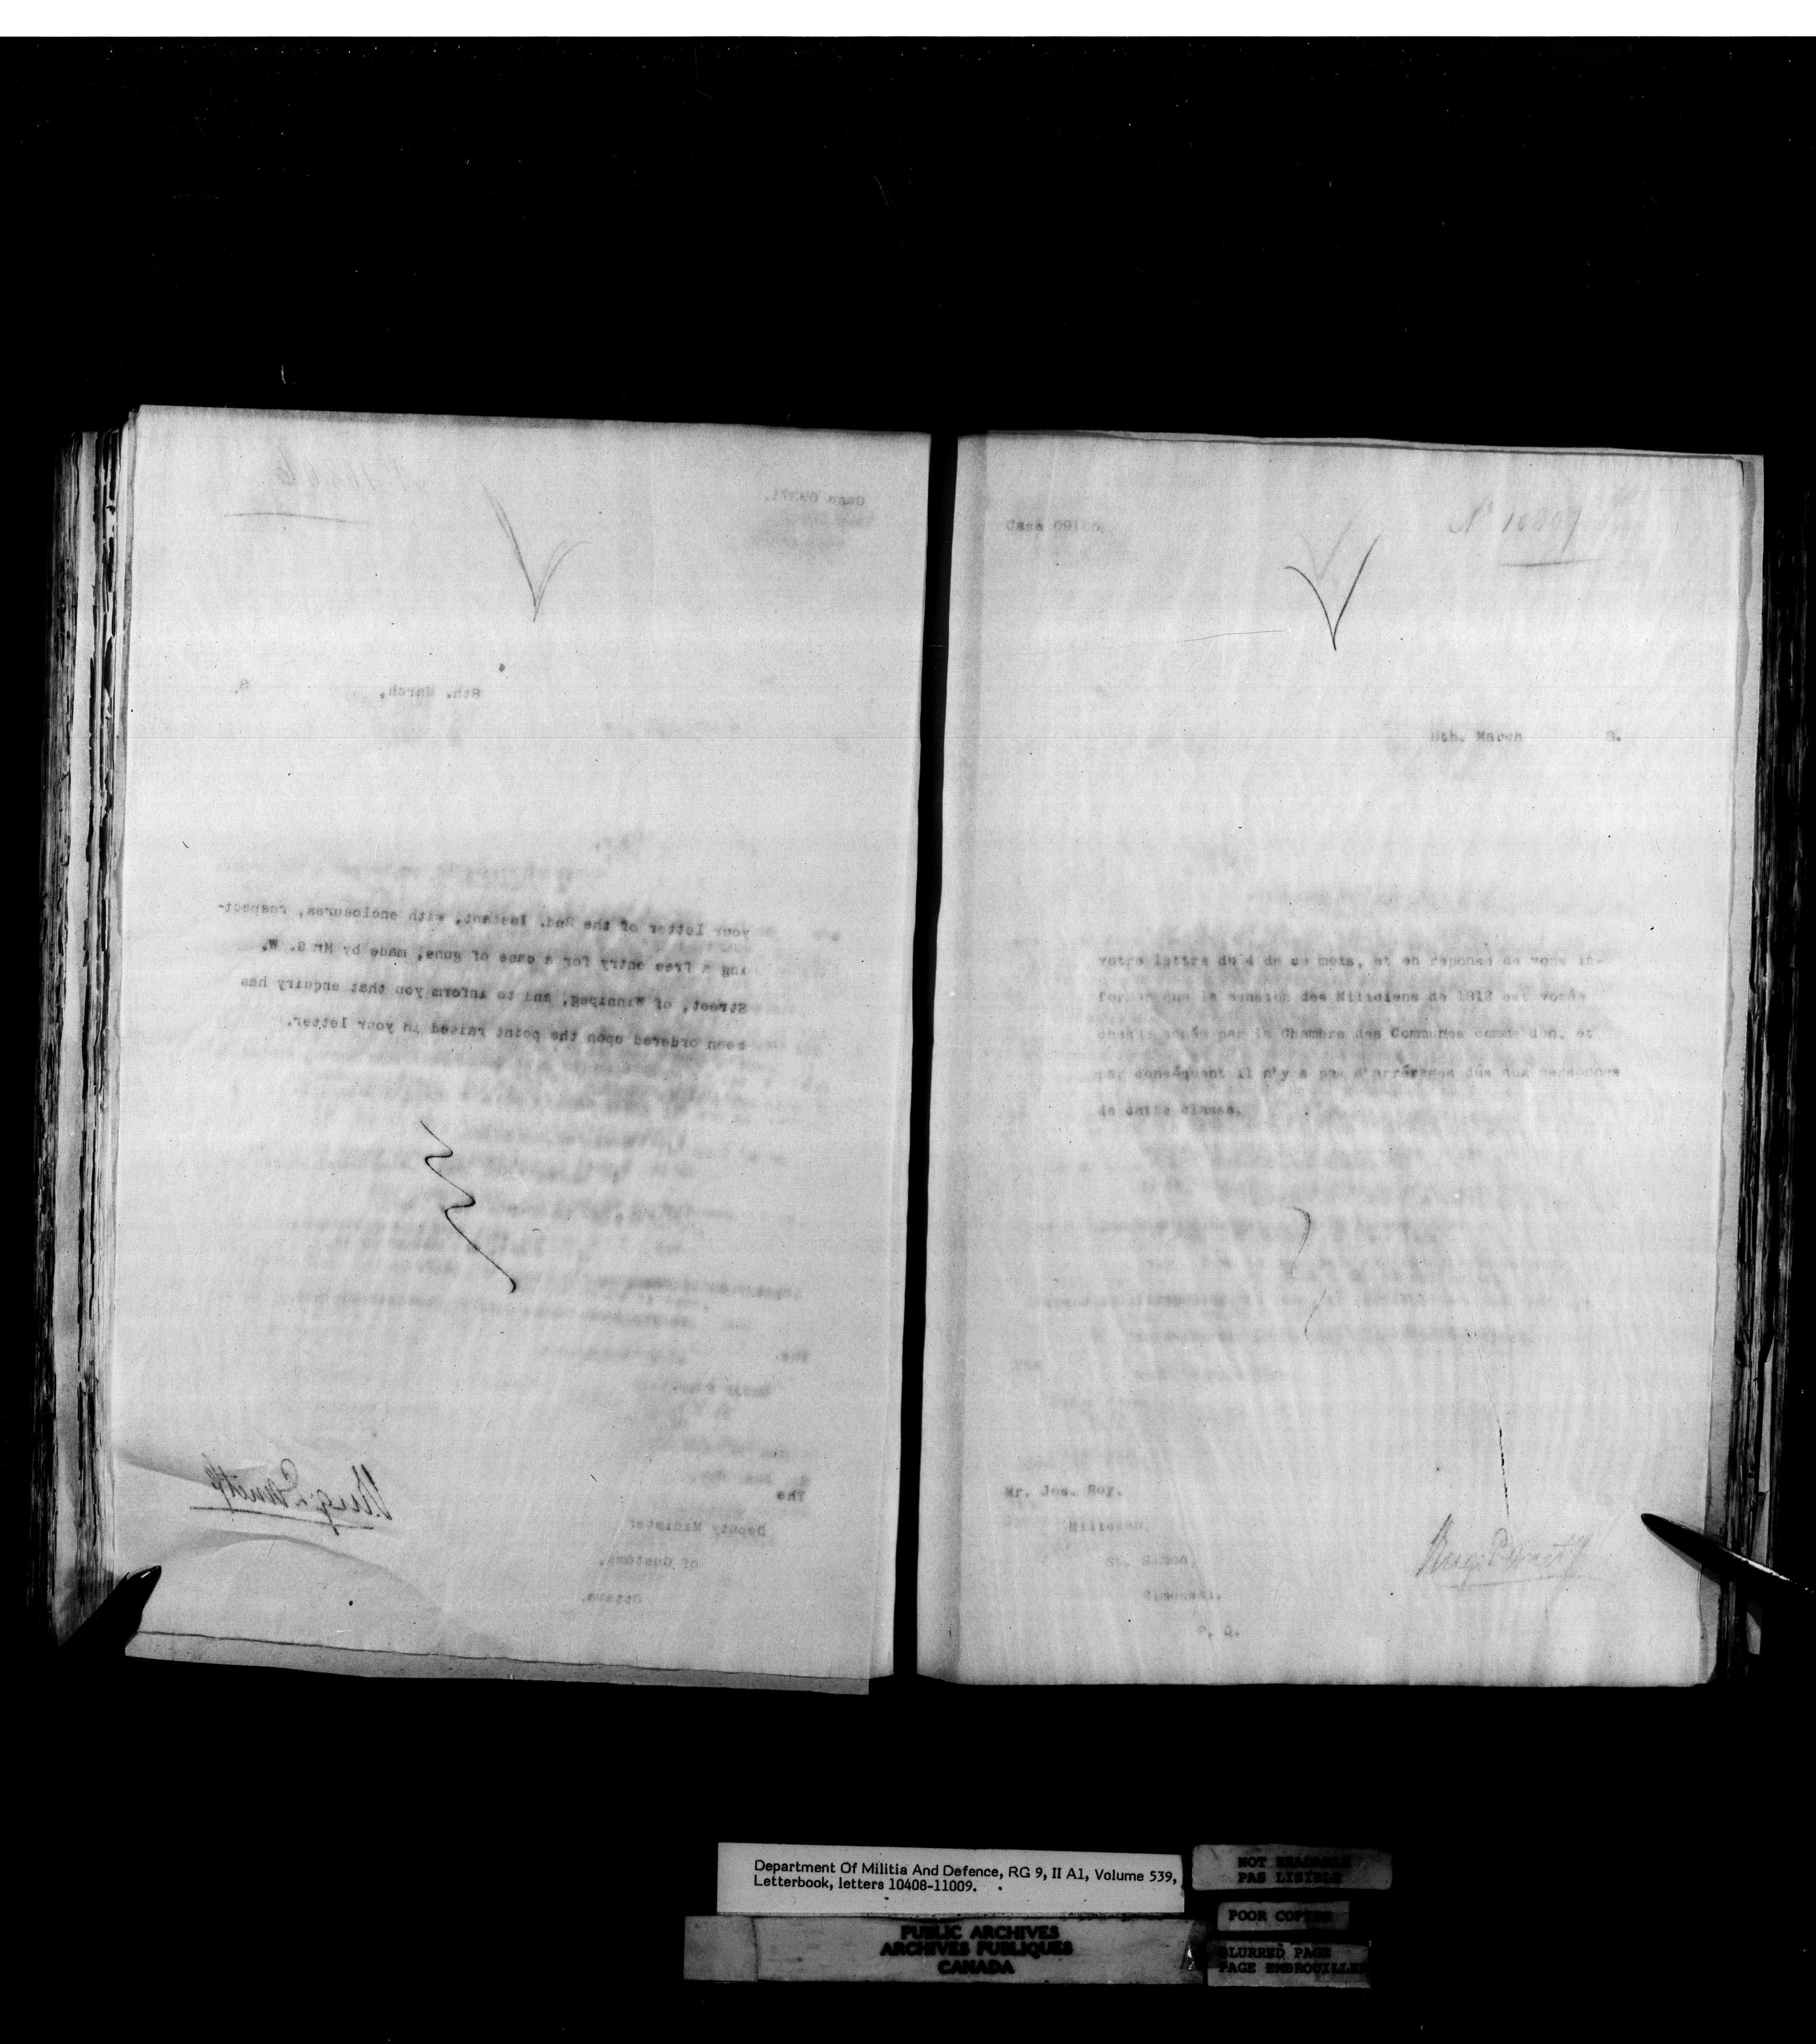 Case 09371.
8th. March, 8.
your letter of the 2nd. Instant, with enclosures, respect-
ing a free entry for a case of guns, made by Mr G. W.
Street, of Winnipeg, and to inform you that enquiry has
been ordered upon the point raised in your letter.
The
Deputy Minister
of Customs,
Ottawa.
Case
No 10807
March 8.
votre lettre du 4 de ce mois, et en réponse de vous in-
former que la pension des Miliciens de 1812 est votée
chaque année par la Chambre des Communes comme don, et
par conséquent il n'y a pas d'arrérages dûs aux personnes
de cette classe.
Mr. Jos. Roy,
Milicien,
St. Simon,
Rimouski.
P. Q.
Department Of Militia And Defence, RG 9, II A1, Volume 539,
Letterbook, letters 10408-11009.
NOT READABLE
PAS LISIBLE
POOR COPIES
PUBLIC ARCHIVES
ARCHIVES PUBLIQUES
CANADA
BLURRED PAGE
PAGE EMBROUILLEE